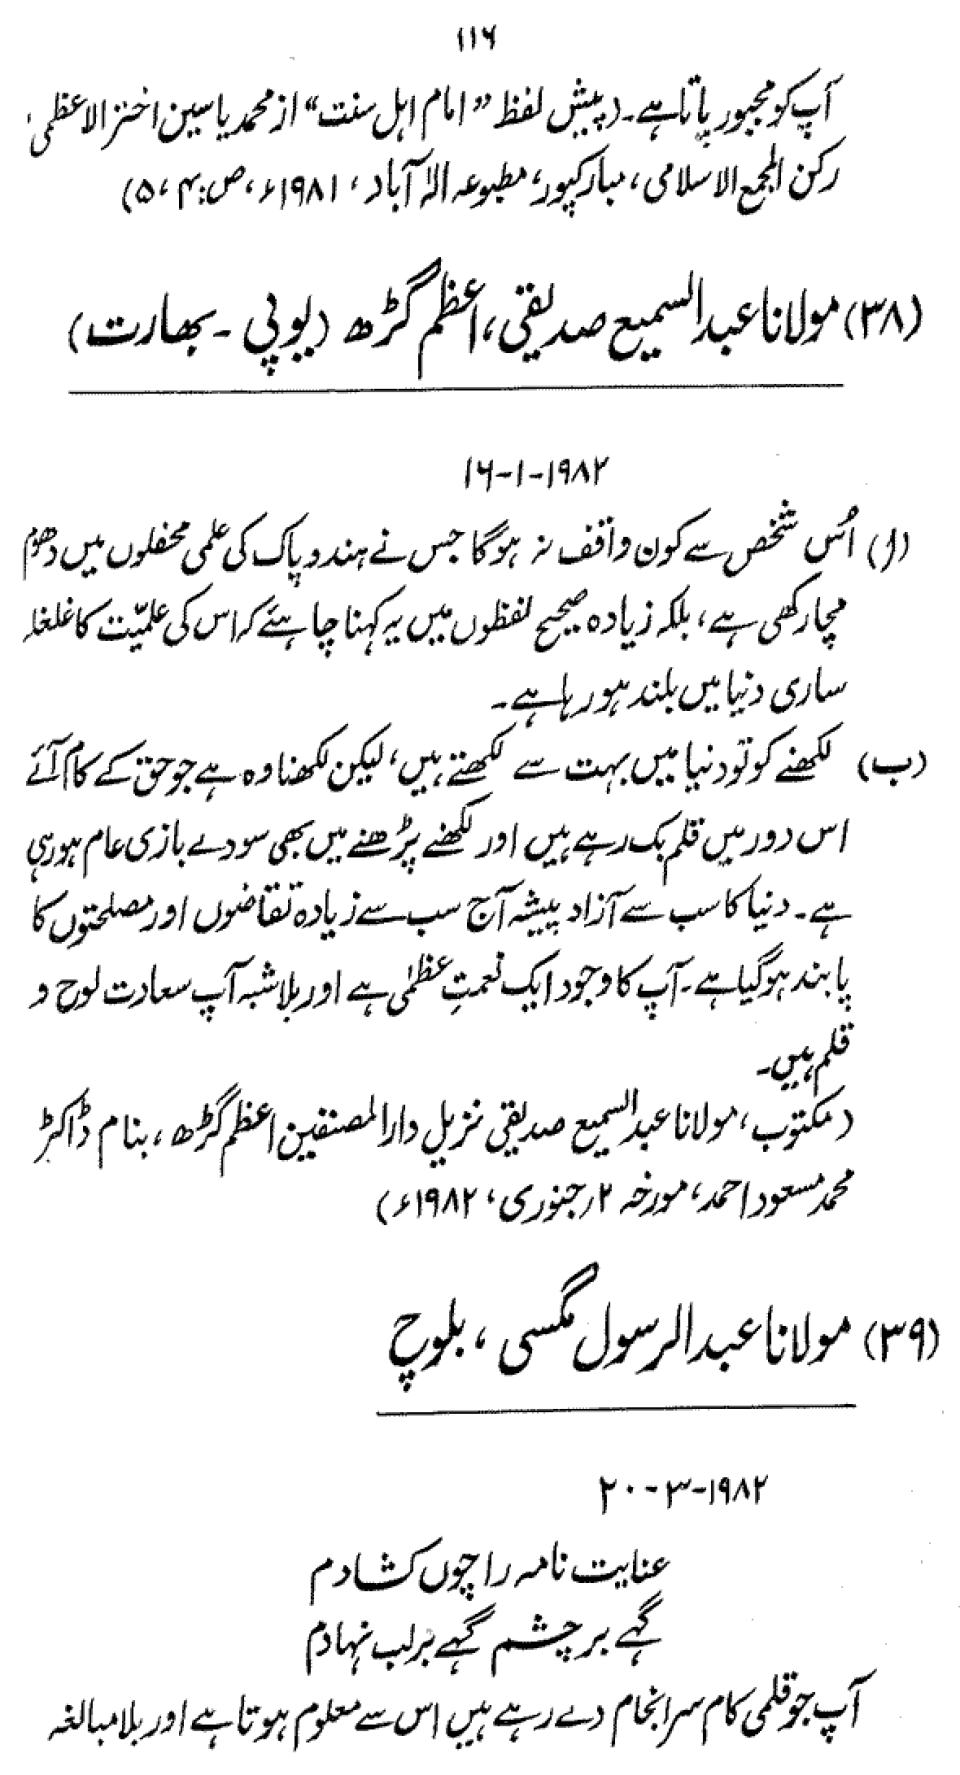 ۱۱۶
آپ کو مجبور پاتا ہے۔ (پیش لفظ "امام اہل سنت" از محمد یاسین اختر الاعظمی،
رکن المجمع الاسلامی، مبارکپور، مطبوعہ الٰہ آباد، ۱۹۸۱ء، ص: ۴، ۵)
(۳۸) مولانا عبد السمیع صدیقی، اعظم گڑھ (یوپی - بھارت)
۱۶-۱-۱۹۸۲
(ا) اُس شخص سے کون واقف نہ ہوگا جس نے ہند و پاک کی علمی محفلوں میں دھوم
مچا رکھی ہے، بلکہ زیادہ صحیح لفظوں میں یہ کہنا چاہئے کہ اس کی علمیّت کا غلغلہ
ساری دنیا میں بلند ہو رہا ہے۔
(ب) لکھنے کو تو دنیا میں بہت سے لکھتے ہیں، لیکن لکھنا وہ ہے جو حق کے کام آئے
اس دور میں قلم بک رہے ہیں اور لکھنے پڑھنے میں بھی سودے بازی عام ہو رہی
ہے۔ دنیا کا سب سے آزاد پیشہ آج سب سے زیادہ تقاضوں اور مصلحتوں کا
پابند ہو گیا ہے۔ آپ کا وجود ایک نعمتِ عظمٰی ہے اور بلا شبہ آپ سعادت لوح و
قلم ہیں۔
(مکتوب، مولانا عبد السمیع صدیقی نزیل دار المصنفین اعظم گڑھ، بنام ڈاکٹر
محمد مسعود احمد، مورخہ ۲؍ جنوری، ۱۹۸۲ء)
(۳۹) مولانا عبد الرسول مگسی، بلوچ
۲۰-۳-۱۹۸۲
عنایت نامہ را چوں کشادم
گہے بر چشم گہے بر لب نہادم
آپ جو قلمی کام سر انجام دے رہے ہیں اس سے معلوم ہوتا ہے اور بلا مبالغہ